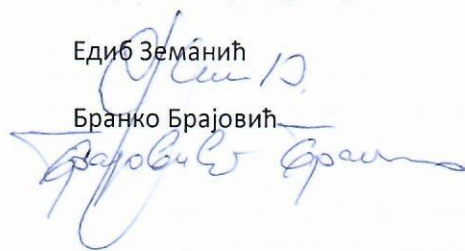 Едиб Земанић
Бранко Брајовић
Брајовић Бранко